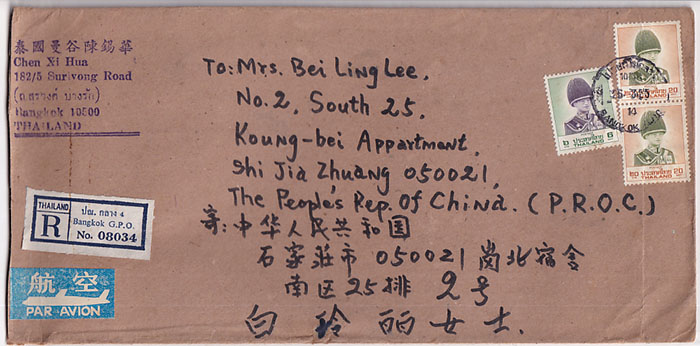 泰國曼谷陳錫華
Chen Xi Hua
182/5 Surivong Road
(ถ.สุรวงศ์ บางรัก)
Bangkok 10500
THAILAND
To: Mrs. Bei Ling Lee,
No.2, South 25,
Koung-bei Appartment,
Shi Jia Zhuang 050021,
The People's Rep. Of China. (P.R.O.C.)
寄:中华人民共和国
石家莊市 050021 崗北宿舍
南区25排 2号
白玲丽女士.
THAILAND
R
ปณ. กลาง 4
Bangkok G.P.O.
No. 08034
航空
PAR AVION
ประเทศไทย
THAILAND
6
ประเทศไทย
THAILAND
20
ประเทศไทย
THAILAND
20